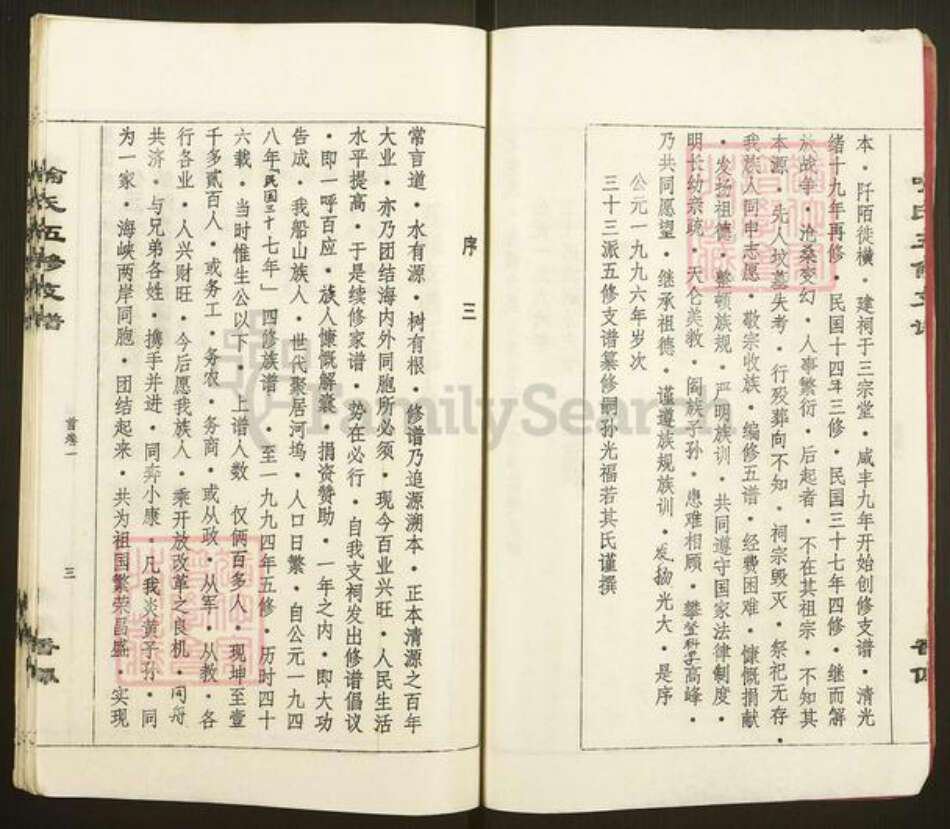 本·阡陌徒横·建祠于三宗堂·咸丰九年开始创修支谱·清光
绪十九年再修·民国十四年三修·民国三十七年四修·继而解
放战争·沧桑变幻·人事繁衍·后起者·不在其祖宗·不知其
本源·先人坟墓失考·行殁葬向不知·祠宗毁灭·祭祀无存·
我族人同申志愿·敬宗收族·编修五谱·经费困难·慷慨捐献
·发扬祖德·整顿族规·严明族训·共同遵守国家法律制度·
明长幼宗统·天仑美教·阖族子孙·患难相顾·攀登科学高峰·
乃共同愿望·继承祖德·谨遵族规族训·发扬光大·是序
公元一九九六年岁次
三十三派五修支谱纂修嗣孙光福若其氏谨撰
序三
常言道·水有源·树有根·修谱乃追源溯本·正本清源之百年
大业·亦乃团结海内外同胞所必须·现今百业兴旺·人民生活
水平提高·于是续修家谱·势在必行·自我支祠发出修谱倡议
·即一呼百应·族人慷慨解囊·捐资赞助·一年之内·即大功
告成·我船山族人·世代聚居河坞·人口日繁·自公元一九四
八年「民国三十七年」四修族谱·至一九九四年五修·历时四十
六载·当时惟生公以下·上谱人数 仅俩百多人·现坤至壹
千多贰百人·或务工·务农·务商·或从政·从军·从教·各
行各业·人兴财旺·今后愿我族人·乘开放改革之良机·同舟
共济·与兄弟各姓·携手并进·同奔小康·凡我炎黄子孙·同
为一家·海峡两岸同胞·团结起来·共为祖国繁荣昌盛·实现
首卷一
三
五修支谱
FamilySearch